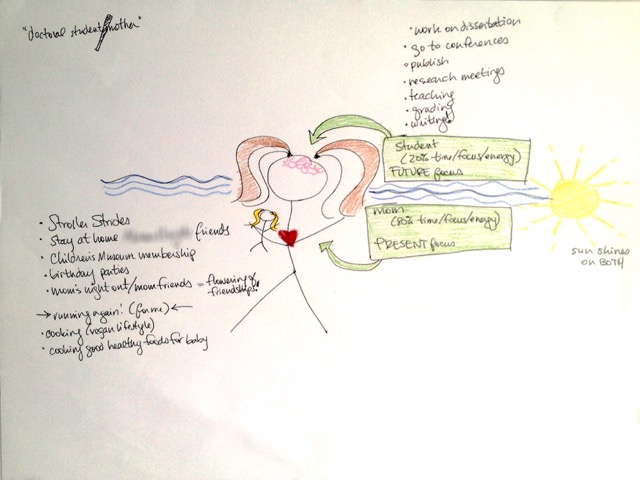 "doctoral student/mother"
• work on dissertation
• go to conferences
• publish
• research meetings
• teaching
• grading
• writing!
Student
(20% time/focus/energy)
FUTURE focus
mom
(80% time/focus/energy)
PRESENT focus
sun shines
on BOTH
• Stroller Strides
• Stay at home friends
• Children's Museum membership
• birthday parties
• mom's night out/mom friends = flowering of
friendships!
→ running again! (for me) ←
• cooking (vegan lifestyle)
• cooking good healthy foods for baby